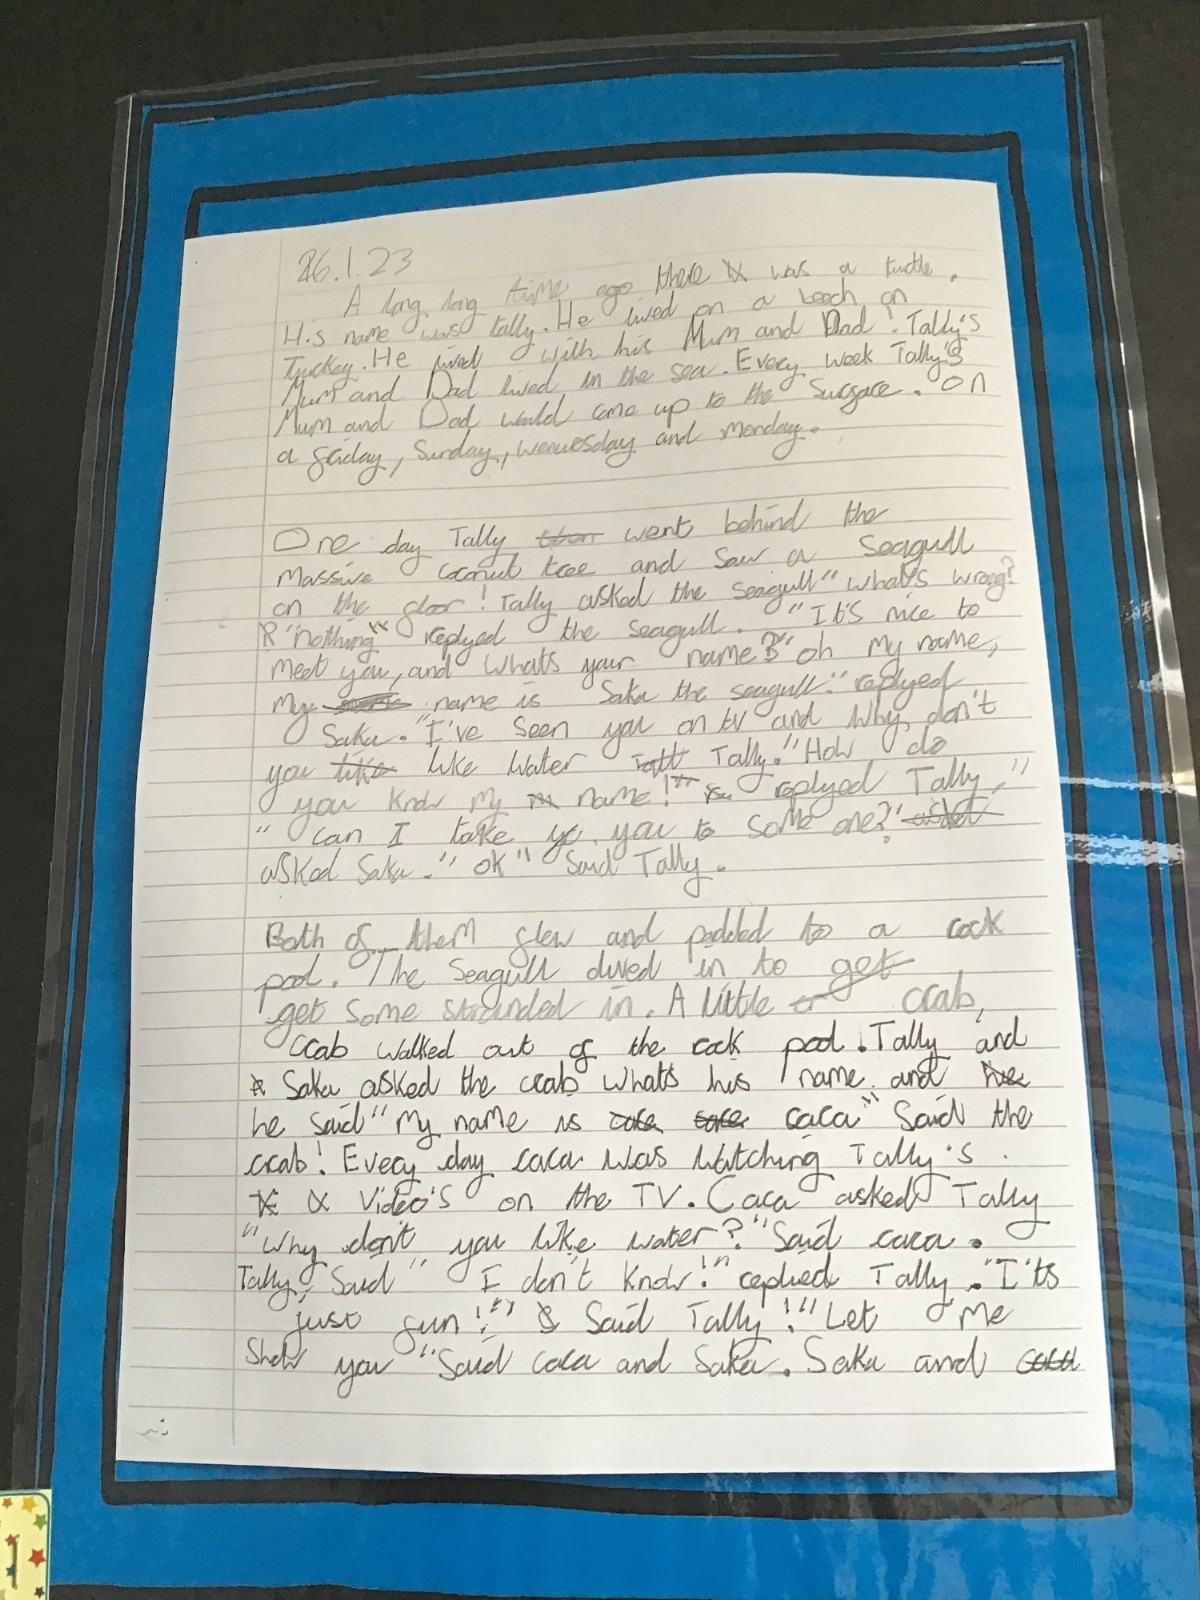 26.1.23
A long, long time ago there was a turtle.
His name was tally. He lived on a beach on
Turkey. He lived with his Mum and Dad! Tally's
Mum and Dad lived in the sea. Every week Tally's
Mum and Dad would come up to the Surface. On
a friday, Sunday, wenuesday and monday.
One day Tally went behind the
massive coconut tree and saw a seagull
on the floor! Tally asked the seagull" what's wrong?
"nothing" replyed the seagull. "It's nice to
meet you, and whats your name?" oh my name,
my name is Saka the seagull." replyed
Saka. "I've seen you on tv and why don't
you like water Tally." How do
you know my name!" replyed Tally,"
" can I take you to some one?"
asked Saka." ok" Said Tally.
Both of them flew and padded to a rock
pool. The Seagull dived in to
get some stranded in. A little crab,
crab walked out of the rock pool. Tally and
Saka asked the crab whats his name and
he said" my name is caca" Said the
crab! Every day caca was watching Tally's.
Video's on the TV. Caca asked Tally
"Why don't you like water?" Said caca.
Tally, Said" I don't know!" replied Tally. "I'ts
just fun!" Said Tally!" Let me
Show you "Said caca and Saka. Saka and
1